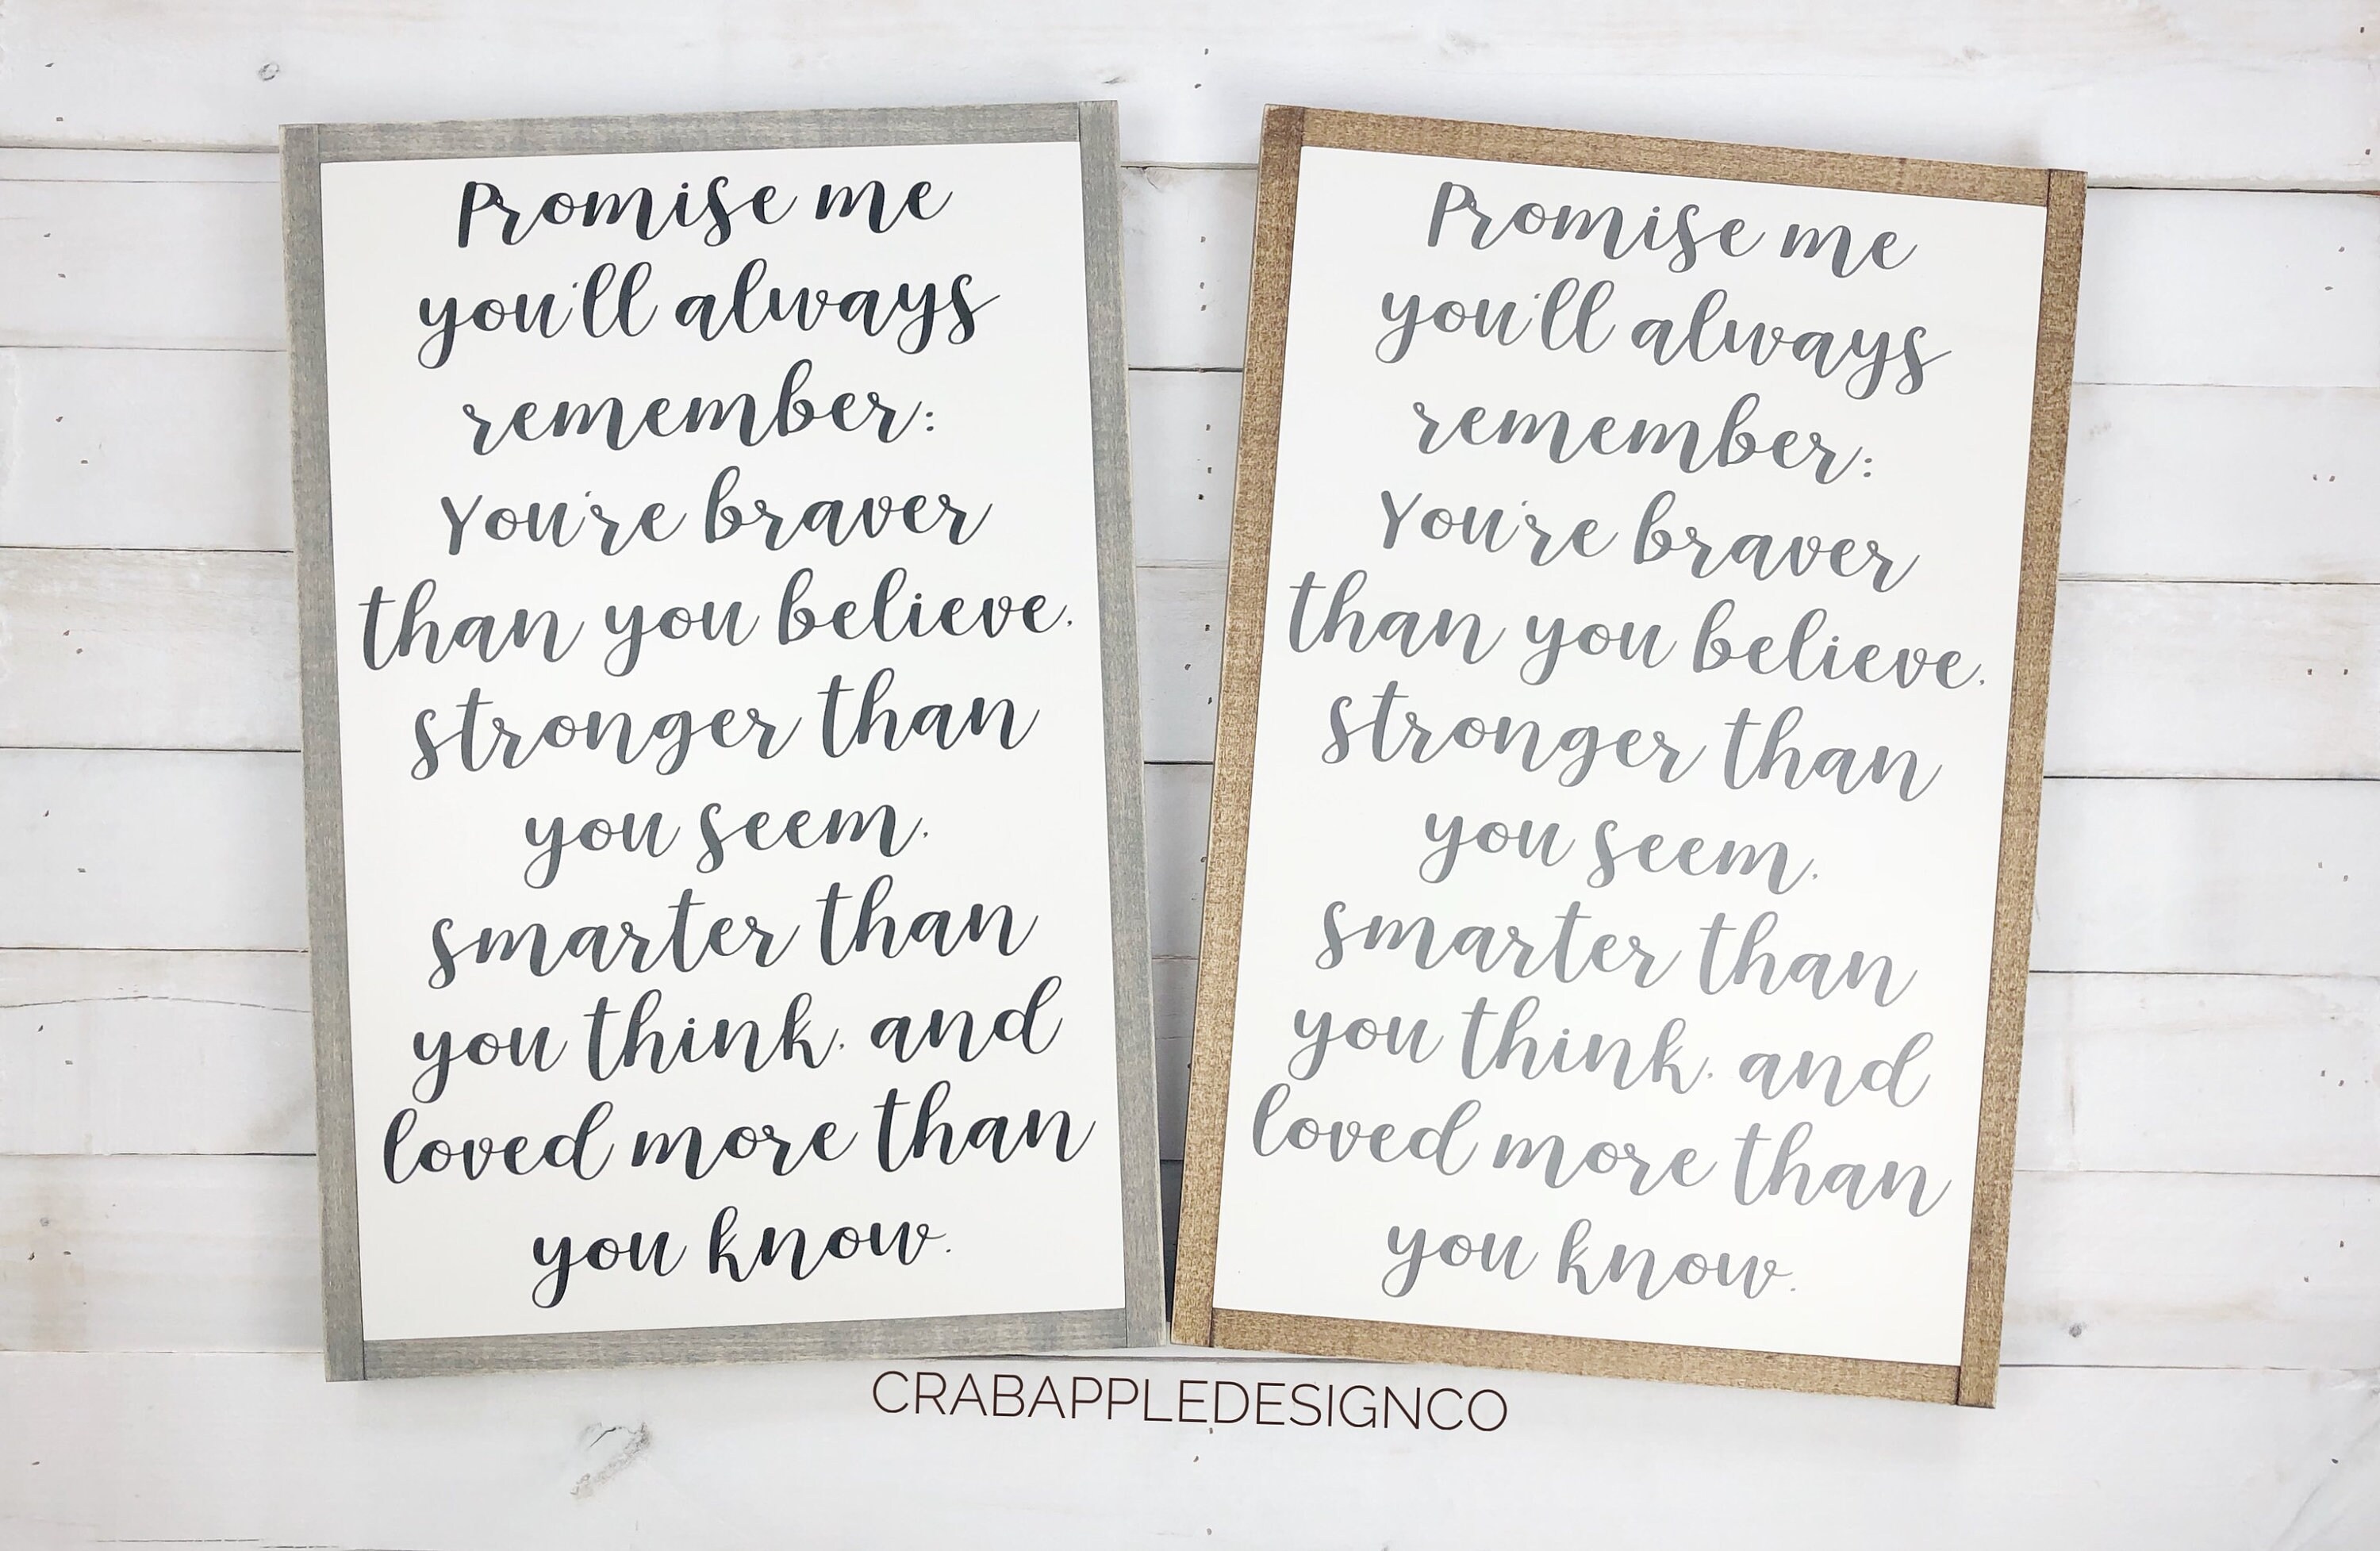 Promise me
you'll always
remember:
You're braver
than you believe,
stronger than
you seem,
smarter than
you think, and
loved more than
you know.
Promise me
you'll always
remember:
You're braver
than you believe,
stronger than
you seem,
smarter than
you think, and
loved more than
you know.
CRABAPPLEDESIGNCO